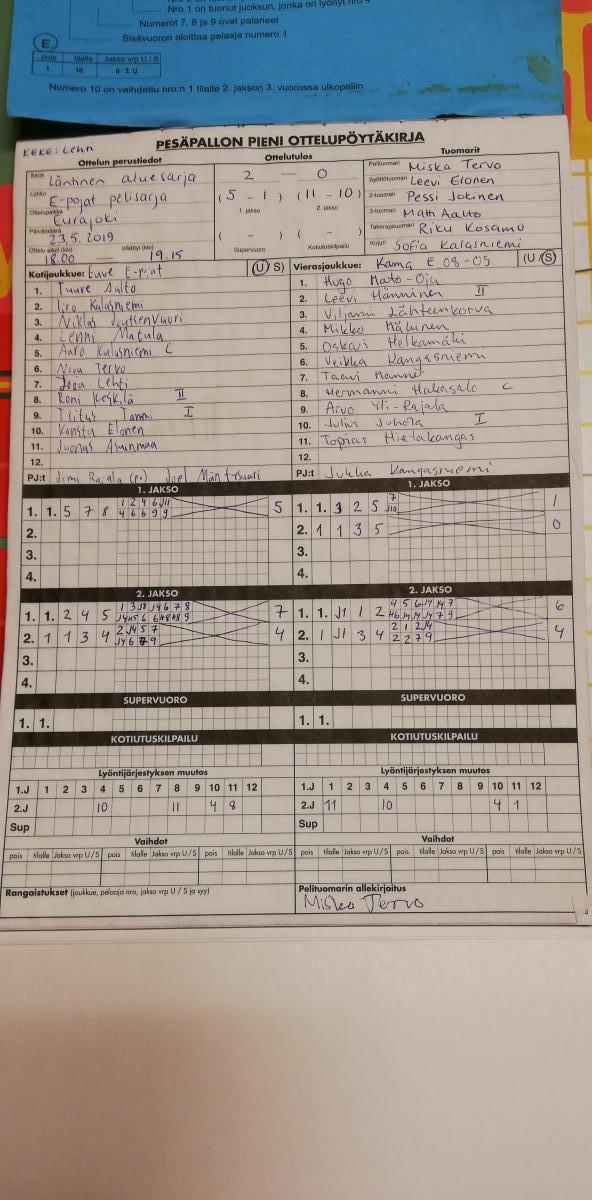 Nro 1 on tuonut juoksun, jonka on lyönyt nro 4
Numerot 7, 8 ja 9 ovat palaneet
Sisävuoron aloittaa pelaaja numero 1
E.
pois tilalle Jakso vrp U / S
1 10 II 3. U
Numero 10 on vaihdettu nro:n 1 tilalle 2. jakson 3. vuorossa ulkopeliin
KEKE: Lehti
PESÄPALLON PIENI OTTELUPÖYTÄKIRJA
Ottelun perustiedot Ottelutulos Tuomarit
Sarja Läntinen aluesarja 2 — 0 Pelituomari Miska Tervo
Lohko E-pojat pelisarja (5 - 1) (11 - 10) Syöttötuomari Leevi Elonen
1. jakso 2. jakso 2-tuomari Pessi Jokinen
Ottelupaikka Eurajoki 3-tuomari Matti Aalto
Päivämäärä 23.5.2019 ( - ) ( - ) Takarajatuomari Riku Kosamo
Ottelu alkoi (klo) 18.00 päättyi (klo) 19.15 Supervuoro Kotiutuskilpailu Kirjuri Sofia Kalasniemi
Kotijoukkue: Euve E-pojat (U/ S) Vierasjoukkue: Kama E 08-05 (U / S)
1. Tuure Salto 1. Hugo Mato-Oja
2. Iiro Kalasniemi 2. Leevi Hänninen II
3. Niklas Joutsenvuori 3. Viljami Lähteenkorva
4. Lenni Matula 4. Mikko Mäkinen
5. Aaro Kalasniemi C 5. Oskari Helkamäki
6. Nooa Tervo 6. Veikka Kangasniemi
7. Joona Lehti 7. Taavi Manner
8. Roni Keskilä II 8. Hermanni Hakasalo C
9. Tiitus Tammi I 9. Arvo Yli-Rajala
10. Konsta Elonen 10. Julius Juhola I
11. Joonas Asunmaa 11. Topias Hietakangas
12. 12.
PJ:t Jimi Rajala (p.) Joel Mäntysaari PJ:t Jukka Kangasniemi
1. JAKSO 1. JAKSO
1. 1. 5 7 8 5 1. 1. 3 2 5 1
2. 2. 1 1 3 5 0
3. 3.
4. 4.
2. JAKSO 2. JAKSO
1. 1. 2 4 5 7 1. 1. J1 1 2 6
2. 1 1 3 4 4 2. 1 J1 3 4 4
3. 3.
4. 4.
SUPERVUORO SUPERVUORO
1. 1. 1. 1.
KOTIUTUSKILPAILU KOTIUTUSKILPAILU
Lyöntijärjestyksen muutos Lyöntijärjestyksen muutos
1.J 1 2 3 4 5 6 7 8 9 10 11 12 1.J 1 2 3 4 5 6 7 8 9 10 11 12
2.J 10 11 4 8 2.J 11 10 4 1
Sup Sup
Vaihdot Vaihdot
pois tilalle Jakso vrp U / S pois tilalle Jakso vrp U / S pois tilalle Jakso vrp U / S pois tilalle Jakso vrp U / S pois tilalle Jakso vrp U / S pois tilalle Jakso vrp U / S
Rangaistukset (joukkue, pelaaja nro, jakso vrp U / S ja syy) Pelituomarin allekirjoitus
Miska Tervo